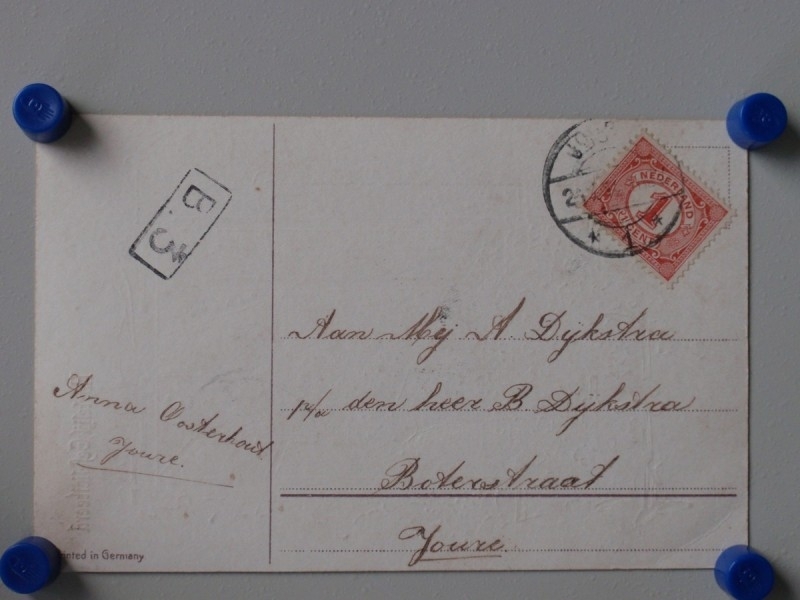 B. 3*
NEDERLAND
1
CENT
Aan Mej A. Dijkstra
p/a den heer B. Dijkstra
Boterstraat
Joure.
Anna Oosterhout
Joure.
Printed in Germany